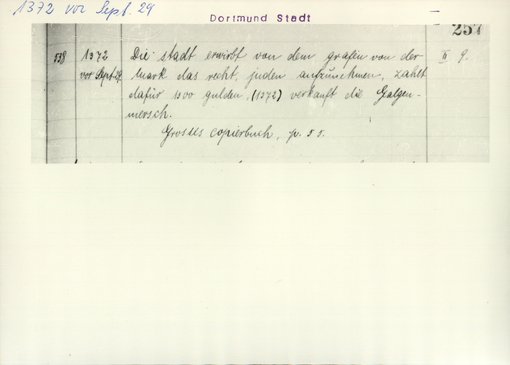 1372 vor Sept. 29
Dortmund Stadt
257
558 1372 Die stadt erwirbt von dem grafen von der II 9.
vor Sept. 29 Mark das recht, juden aufzunehmen, zahlt
dafür 1300 gulden, (1372) verkauft die Galgen-
mersch.
Grosses Copierbuch, p. 55.